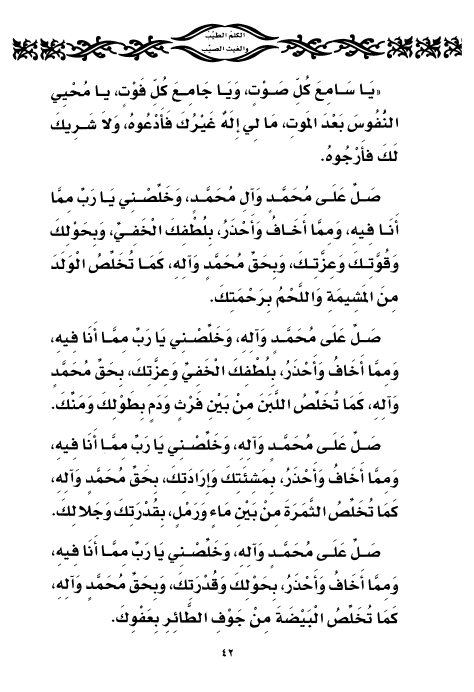 الكلم الطيّب
والغيث الصيّب
«يَا سَامِعَ كُلِّ صَوْتٍ، وَيَا جَامِعَ كُلِّ فَوْتٍ، يا مُحْيي
النُفُوسَ بَعْدَ الموتِ، مَا لي إلَهٌ غَيْرُكَ فَأَدْعُوهُ، وَلاَ شَرِيكَ
لَكَ فأَرْجُوهُ.
صَلِّ عَلَى مُحَمَّدٍ وَآلِ مُحَمَّدٍ، وَخَلِّصْني يَا رَبِّ ممَّا
أَنَا فيهِ، وَممَّا أَخَافُ وَأَحْذَرُ، بِلُطفِكَ الخَفيِّ، وَبِحَوْلِكَ
وَقُوَّتِكَ وَعِزَّتِكَ، وَبِحَقِّ مُحَمَّدٍ وَآلِهِ، كَمَا تُخَلِّصُ الْوَلَدَ
مِنَ المَشِيمَةِ وَاللَّحْمُ بِرَحْمَتِكَ.
صَلِّ عَلَى مُحَمَّدٍ وَآلِهِ، وَخَلِّصْني يَا رَبِّ ممَّا أَنَا فيهِ،
وَممَّا أَخَافُ وَأَحْذَرُ، بِلُطْفِكَ الْخَفيِّ وَعِزَّتِكَ، بِحَقِّ مُحَمَّدٍ
وَآلِهِ، كَمَا تُخَلِّصُ اللَّبَنَ مِنْ بَيْنِ فَرْثٍ وَدَمٍ بِطَوْلِكَ وَمَنِّكَ.
صَلِّ عَلَى مُحَمَّدٍ وَآلِهِ، وَخَلِّصْني يَا رَبِّ ممَّا أَنَا فيهِ،
وَممَّا أَخَافُ وَأَحْذَرُ، بِمَشئَتكَ وَإرَادَتِكَ، بِحَقِّ مُحَمَّدٍ وَآلِهِ،
كَمَا تُخَلِّصُ الثَّمَرَةَ مِنْ بَيْنِ مَاءٍ وَرَمْلٍ، بِقُدْرَتِكَ وَجَلالِكَ.
صَلِّ عَلَى مُحَمَّدٍ وَآلِهِ، وَخَلِّصْني يَا رَبِّ ممَّا أَنَا فيهِ،
وَممَّا أَخَافُ وَأَحْذَرُ، بِحَوْلِكَ وَقُدْرَتِكَ، وَبِحَقِّ مُحَمَّدٍ وَآلِهِ،
كَمَا تُخَلِّصُ الْبَيْضَةَ مِنْ جَوْفِ الطَّائِرِ بِعَفْوِكَ.
٤٢